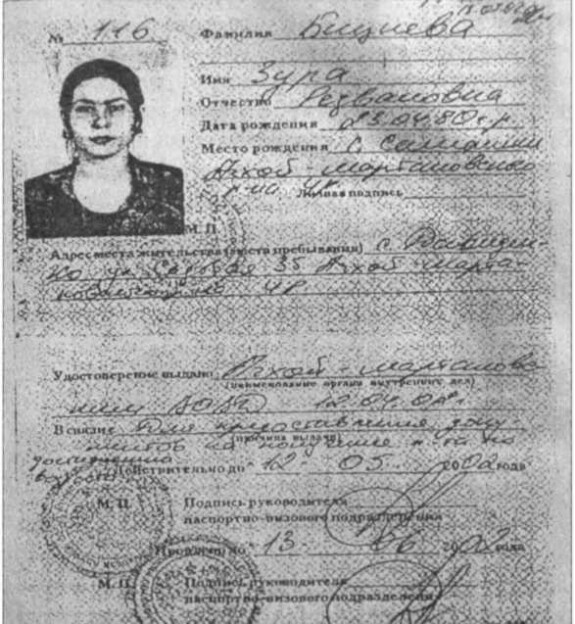 № 116
Фамилия Бициева
Имя Зура
Отчество Резвановна
Дата рождения 23.04.80 г.р.
Место рождения с. Самашки
Ачхой-Мартановского
р-на ЧР
Личная подпись
М. П.
Адрес места жительства (места пребывания) с.
ул. Садовая 35 Ачхой-Марта-
ЧР
Удостоверение выдано Ачхой-Мартановс
(наименование органа внутренних дел)
ким 12.04.02г.
В связи для предоставления доку
(причина выдачи)
ментов на получение п-та по
достижению
возраста
Действительно до " 12 " 05 2002 года
М. П.
Подпись руководителя
паспортно-визового подразделения
Продлено до " 13 " 06 2002 года
М. П.
Подпись руководителя
паспортно-визового подразделения